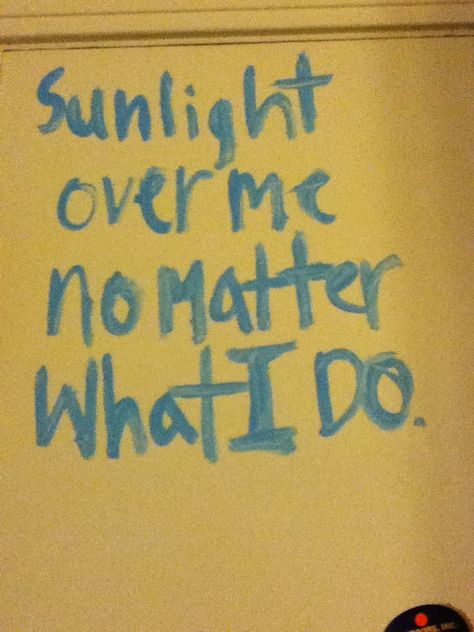 Sunlight
over me
no Matter
What I DO.
INC.